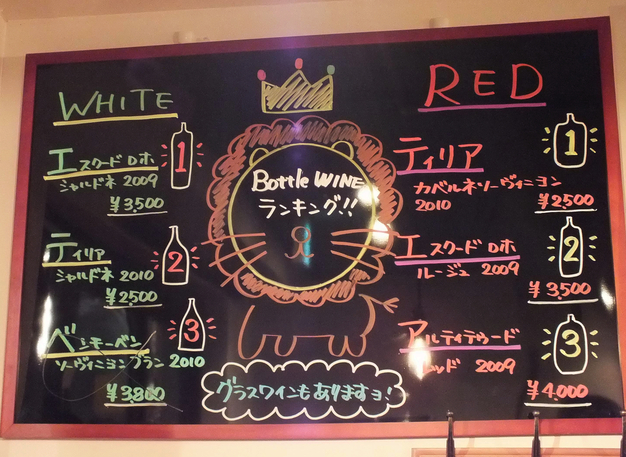 WHITE
エスクード ロホ
1
シャルドネ 2009
¥3,500
ティリア
シャルドネ 2010
2
¥2,500
ベンモーベン
3
ソーヴィニヨンブラン 2010
¥3,800
Bottle WINE
ランキング!!
グラスワインもありますョ!
RED
ティリア
1
カベルネソーヴィニヨン
2010
¥2,500
エスクード ロホ
2
ルージュ 2009
¥3,500
アルティテュード
3
レッド 2009
¥4,000